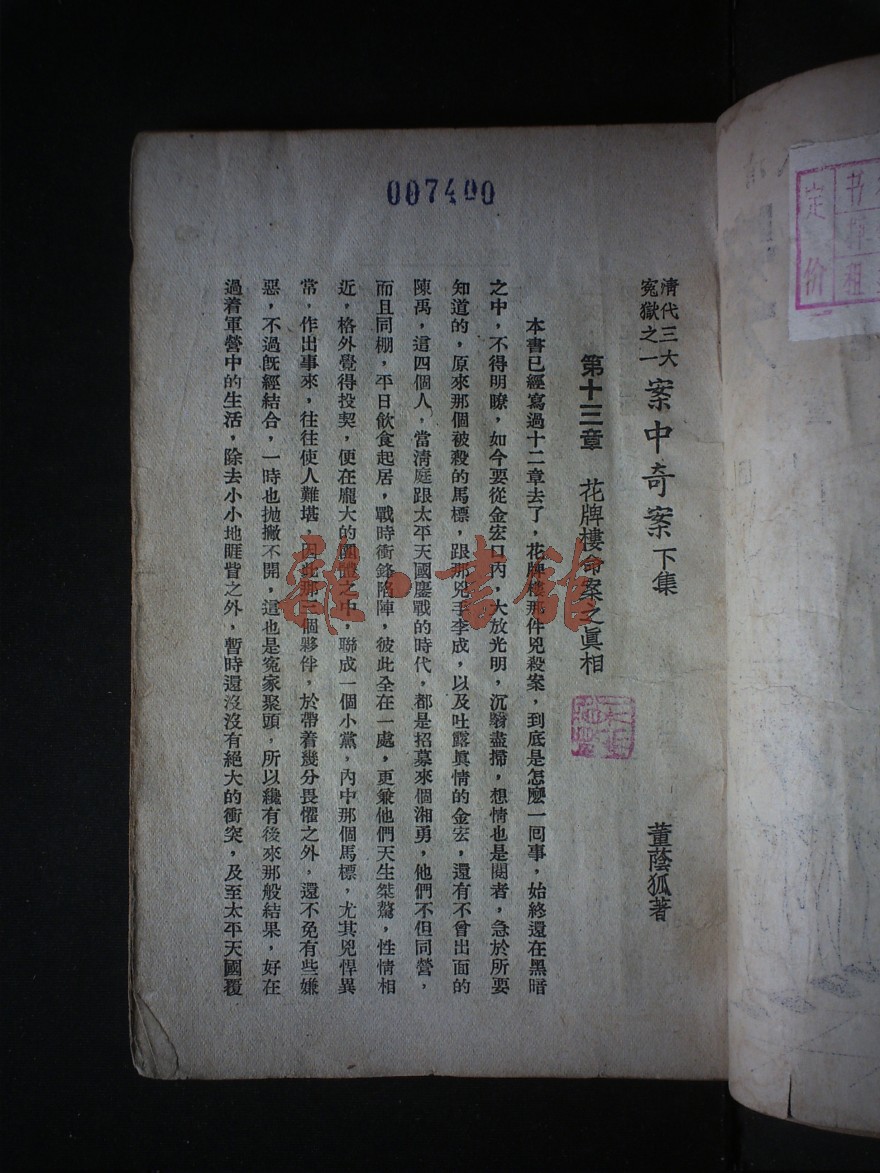 007400
清代三大
冤獄之一
案中奇案 下集
董蔭狐著
第十三章 花牌樓命案之眞相
本書已經寫過十二章去了，花牌樓那件兇殺案，到底是怎麼一囘事，始終還在黑暗
之中，不得明瞭，如今要從金宏口內，大放光明，沉翳盡掃，想情也是閱者，急於所要
知道的，原來那個被殺的馬標，跟那兇手李成，以及吐露眞情的金宏，還有不曾出面的
陳禹，這四個人，當清庭跟太平天國鏖戰的時代，都是招募來個湘勇，他們不但同營，
而且同棚，平日飲食起居，戰時衝鋒陷陣，彼此全在一處，更兼他們天生桀驁，性情相
近，格外覺得投契，便在龐大的團體之中，聯成一個小黨，內中那個馬標，尤其兇悍異
常，作出事來，往往使人難堪，因此那三個夥伴，於帶着幾分畏懼之外，還不免有些嫌
惡，不過旣經結合，一時也拋撇不開，這也是冤家聚頭，所以纔有後來那般結果，好在
過着軍營中的生活，除去小小地睚眥之外，暫時還沒沒有絕大的衝突，及至太平天國覆
雜·書館
定价
书
租